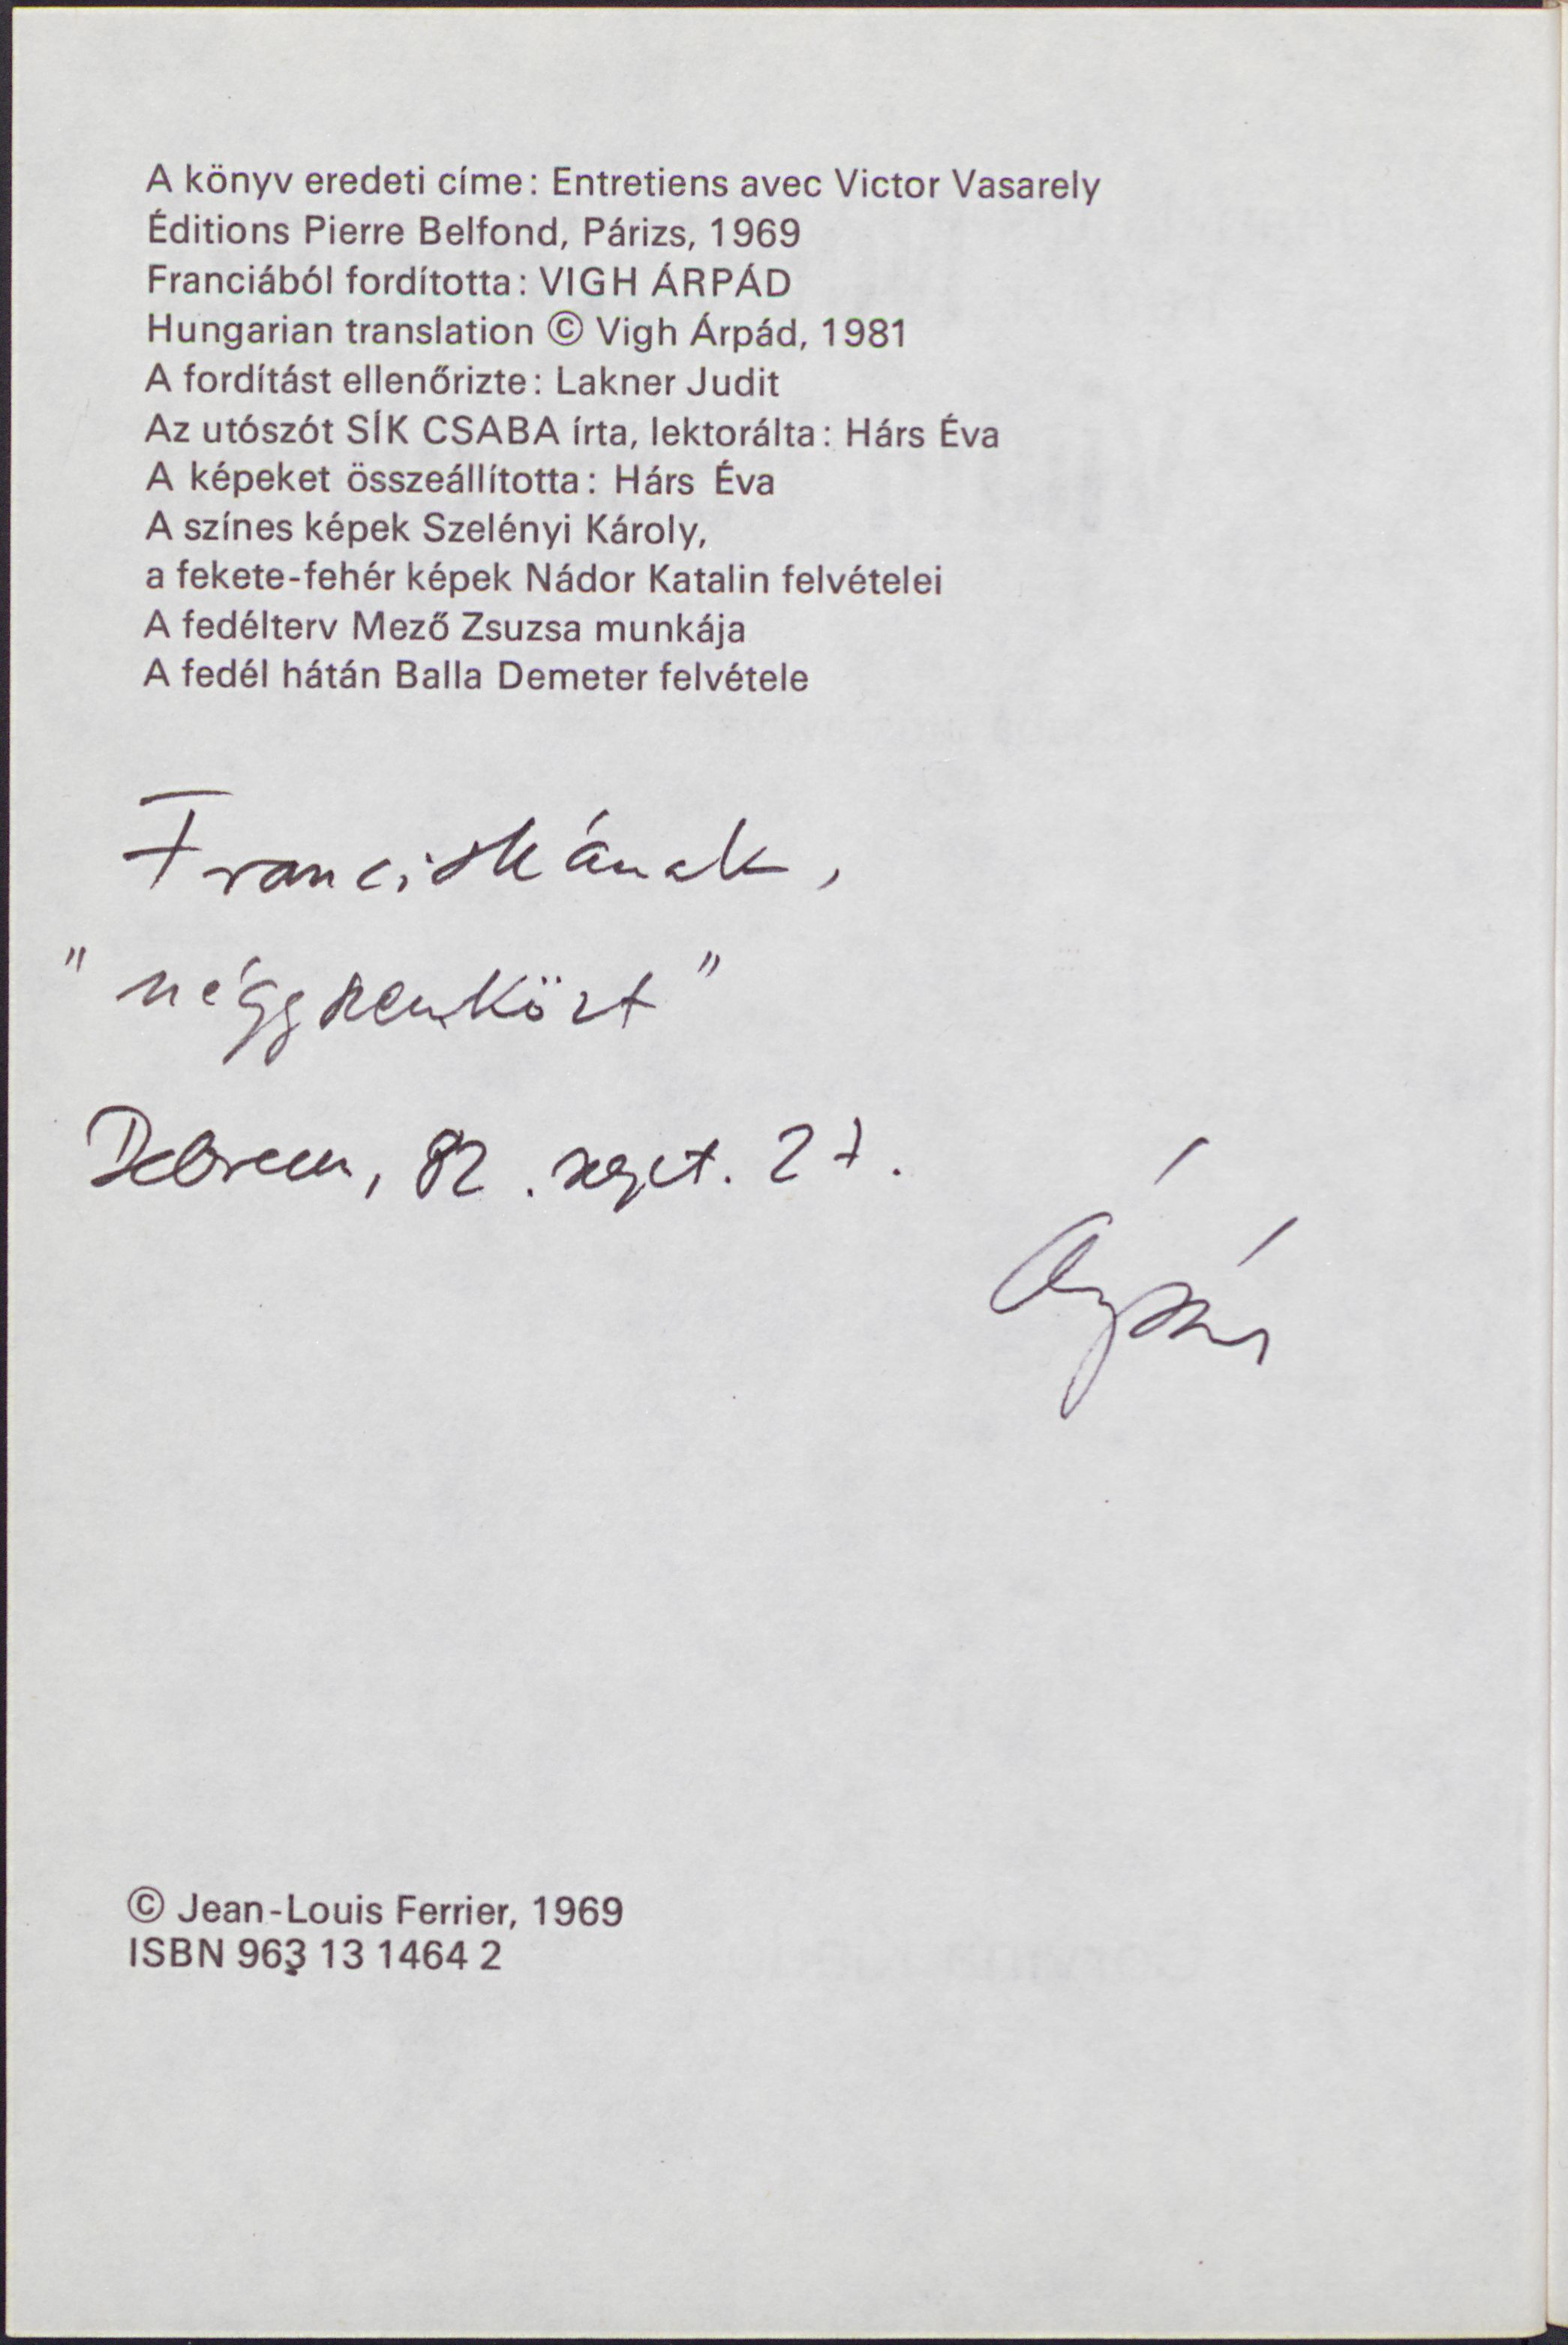 A könyv eredeti címe: Entretiens avec Victor Vasarely
Éditions Pierre Belfond, Párizs, 1969
Franciából fordította: VIGH ÁRPÁD
Hungarian translation © Vigh Árpád, 1981
A fordítást ellenőrizte: Lakner Judit
Az utószót SÍK CSABA írta, lektorálta: Hárs Éva
A képeket összeállította: Hárs Éva
A színes képek Szelényi Károly,
a fekete-fehér képek Nádor Katalin felvételei
A fedélterv Mező Zsuzsa munkája
A fedél hátán Balla Demeter felvétele
Franciskának,
"négyszemközt"
Debrecen, 82. szept. 27.
Árpád
© Jean-Louis Ferrier, 1969
ISBN 963 13 1464 2